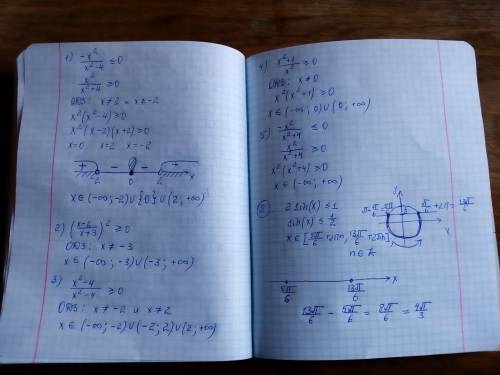 1) -x²/(x²-4) ≤ 0
x²/(x²-4) ≥ 0
ОДЗ: x≠2 и x≠-2
x²(x²-4)≥0
x²(x-2)(x+2)≥0
x=0 x=2 x=-2
+ - - +
-2 0 2 x
x∈(-∞;-2)∪{0}∪(2;+∞)
2) ((x-2)/(x+3))² ≥ 0
ОДЗ: x≠-3
x∈(-∞;-3)∪(-3;+∞)
3) (x²-4)/(x²-4) ≥ 0
ОДЗ: x≠-2 и x≠2
x∈(-∞;-2)∪(-2;2)∪(2;+∞)
4) (x²+1)/x² ≥ 0
ОДЗ: x≠0
x²(x²+1)≥0
x∈(-∞;0)∪(0;+∞)
5) -x²/(x²+4) ≤ 0
x²/(x²+4) ≥ 0
x²(x²+4)≥0
x∈(-∞;+∞)
2 sin(x) ≤ 1
sin(x) ≤ 1/2
x∈[5π/6+2πn; 13π/6+2πn]
n∈Z
y
π-π/6=5π/6
π/6+2π=13π/6
x
5π/6 13π/6 x
13π/6 - 5π/6 = 8π/6 = 4π/3